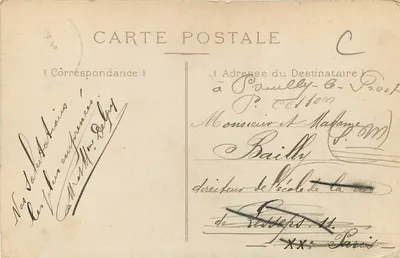 CARTE POSTALE
C
(Correspondance)
(Adresse du Destinataire)
Nos salutations
les plus empressées
à Pouilly-le-Fort
P. Cesson
(S. M)
Monsieur et Madame
Bailly
directeur de l'école de la rue
de Lesseps. 11.
XXe Paris